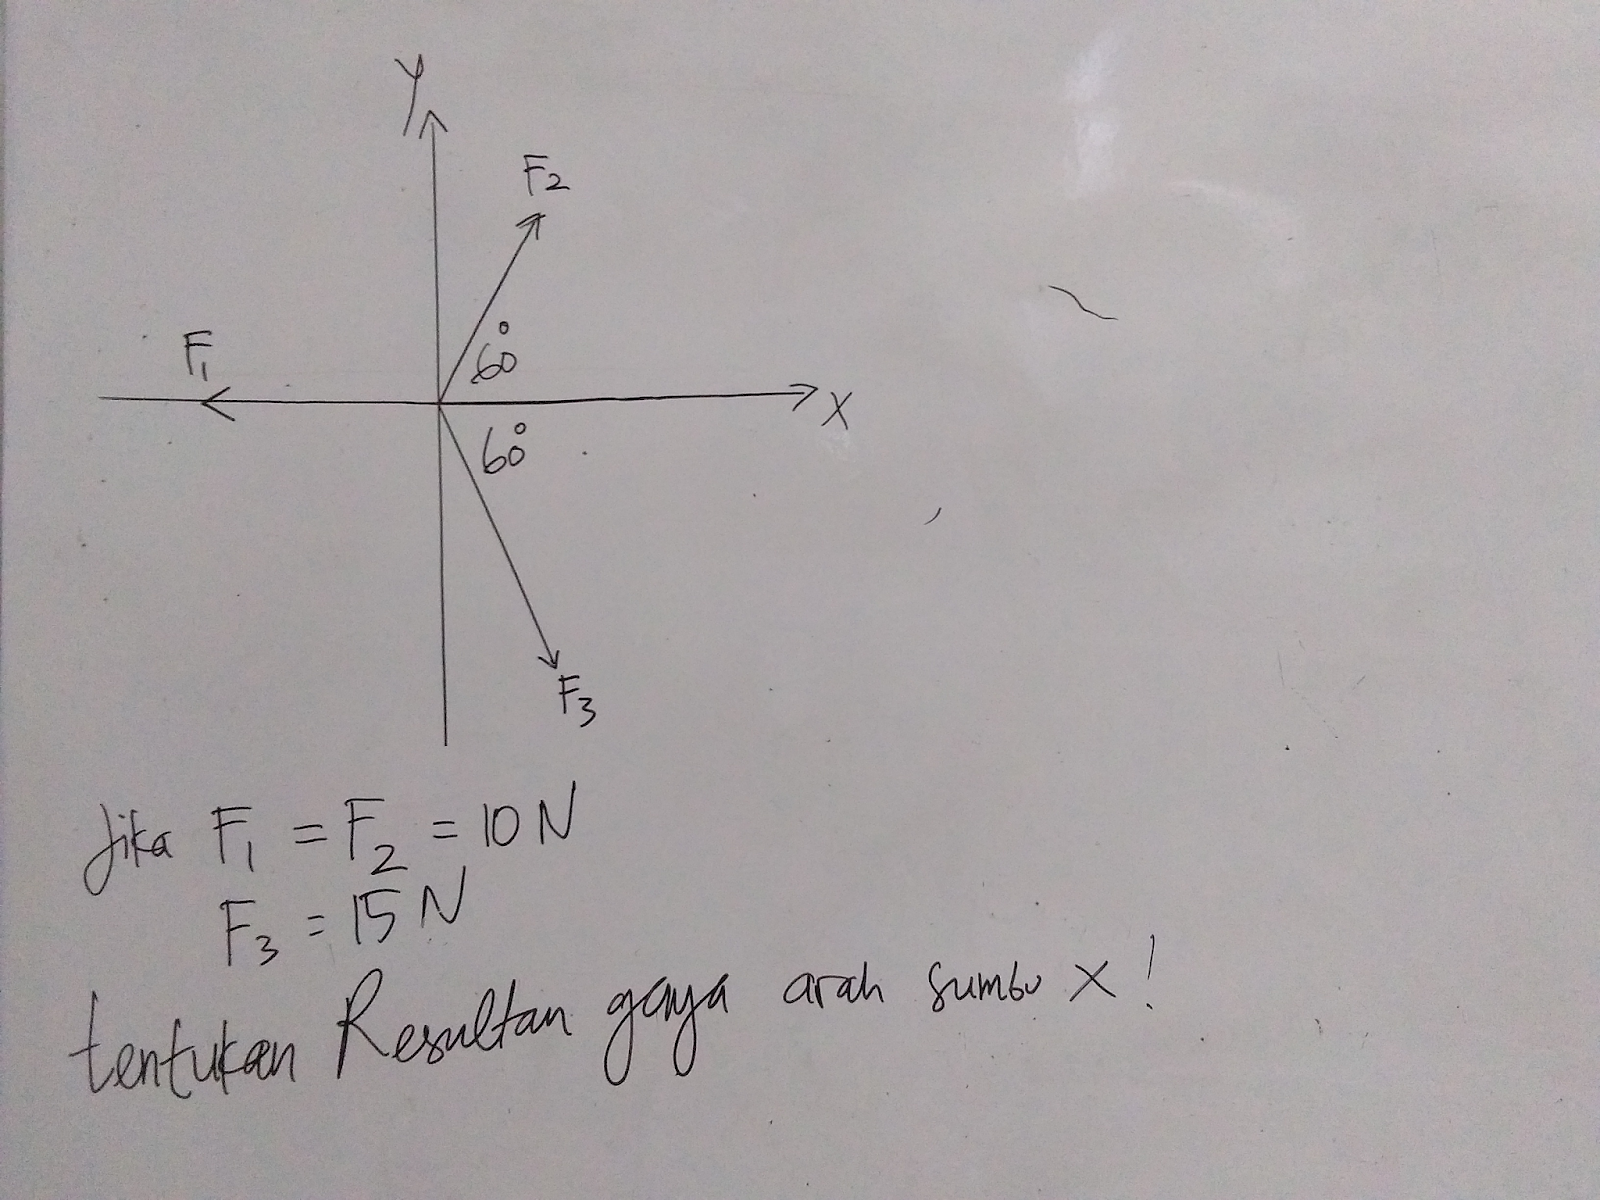 Y
F2
F1
60°
X
60°
F3
Jika F1 = F2 = 10 N
F3 = 15 N
tentukan Resultan gaya arah sumbu X!